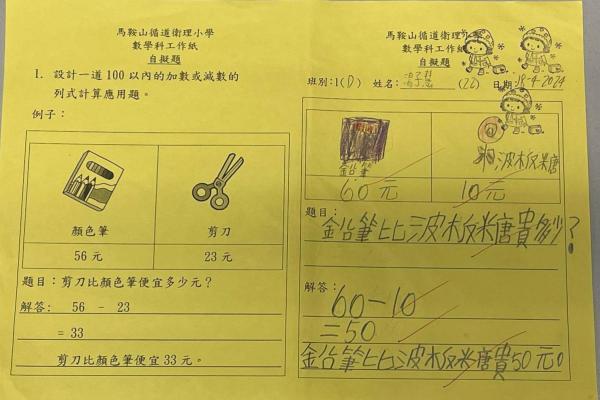 馬鞍山循道衛理小學
數學科工作紙
自擬題
1. 設計一道100以內的加數或減數的
列式計算應用題。
例子：
顏色筆
剪刀
56元
23元
題目：剪刀比顏色筆便宜多少元？
解答： 56 - 23
= 33
剪刀比顏色筆便宜33元。
馬鞍山循道衛理小學
數學科工作紙
自擬題
班別：1(D) 姓名： (22) 日期：18-4-2024
鉛筆
波板糖
60元
10元
題目：
鉛筆比波板糖貴多少？
解答：
60-10
=50
鉛筆比波板糖貴50元。